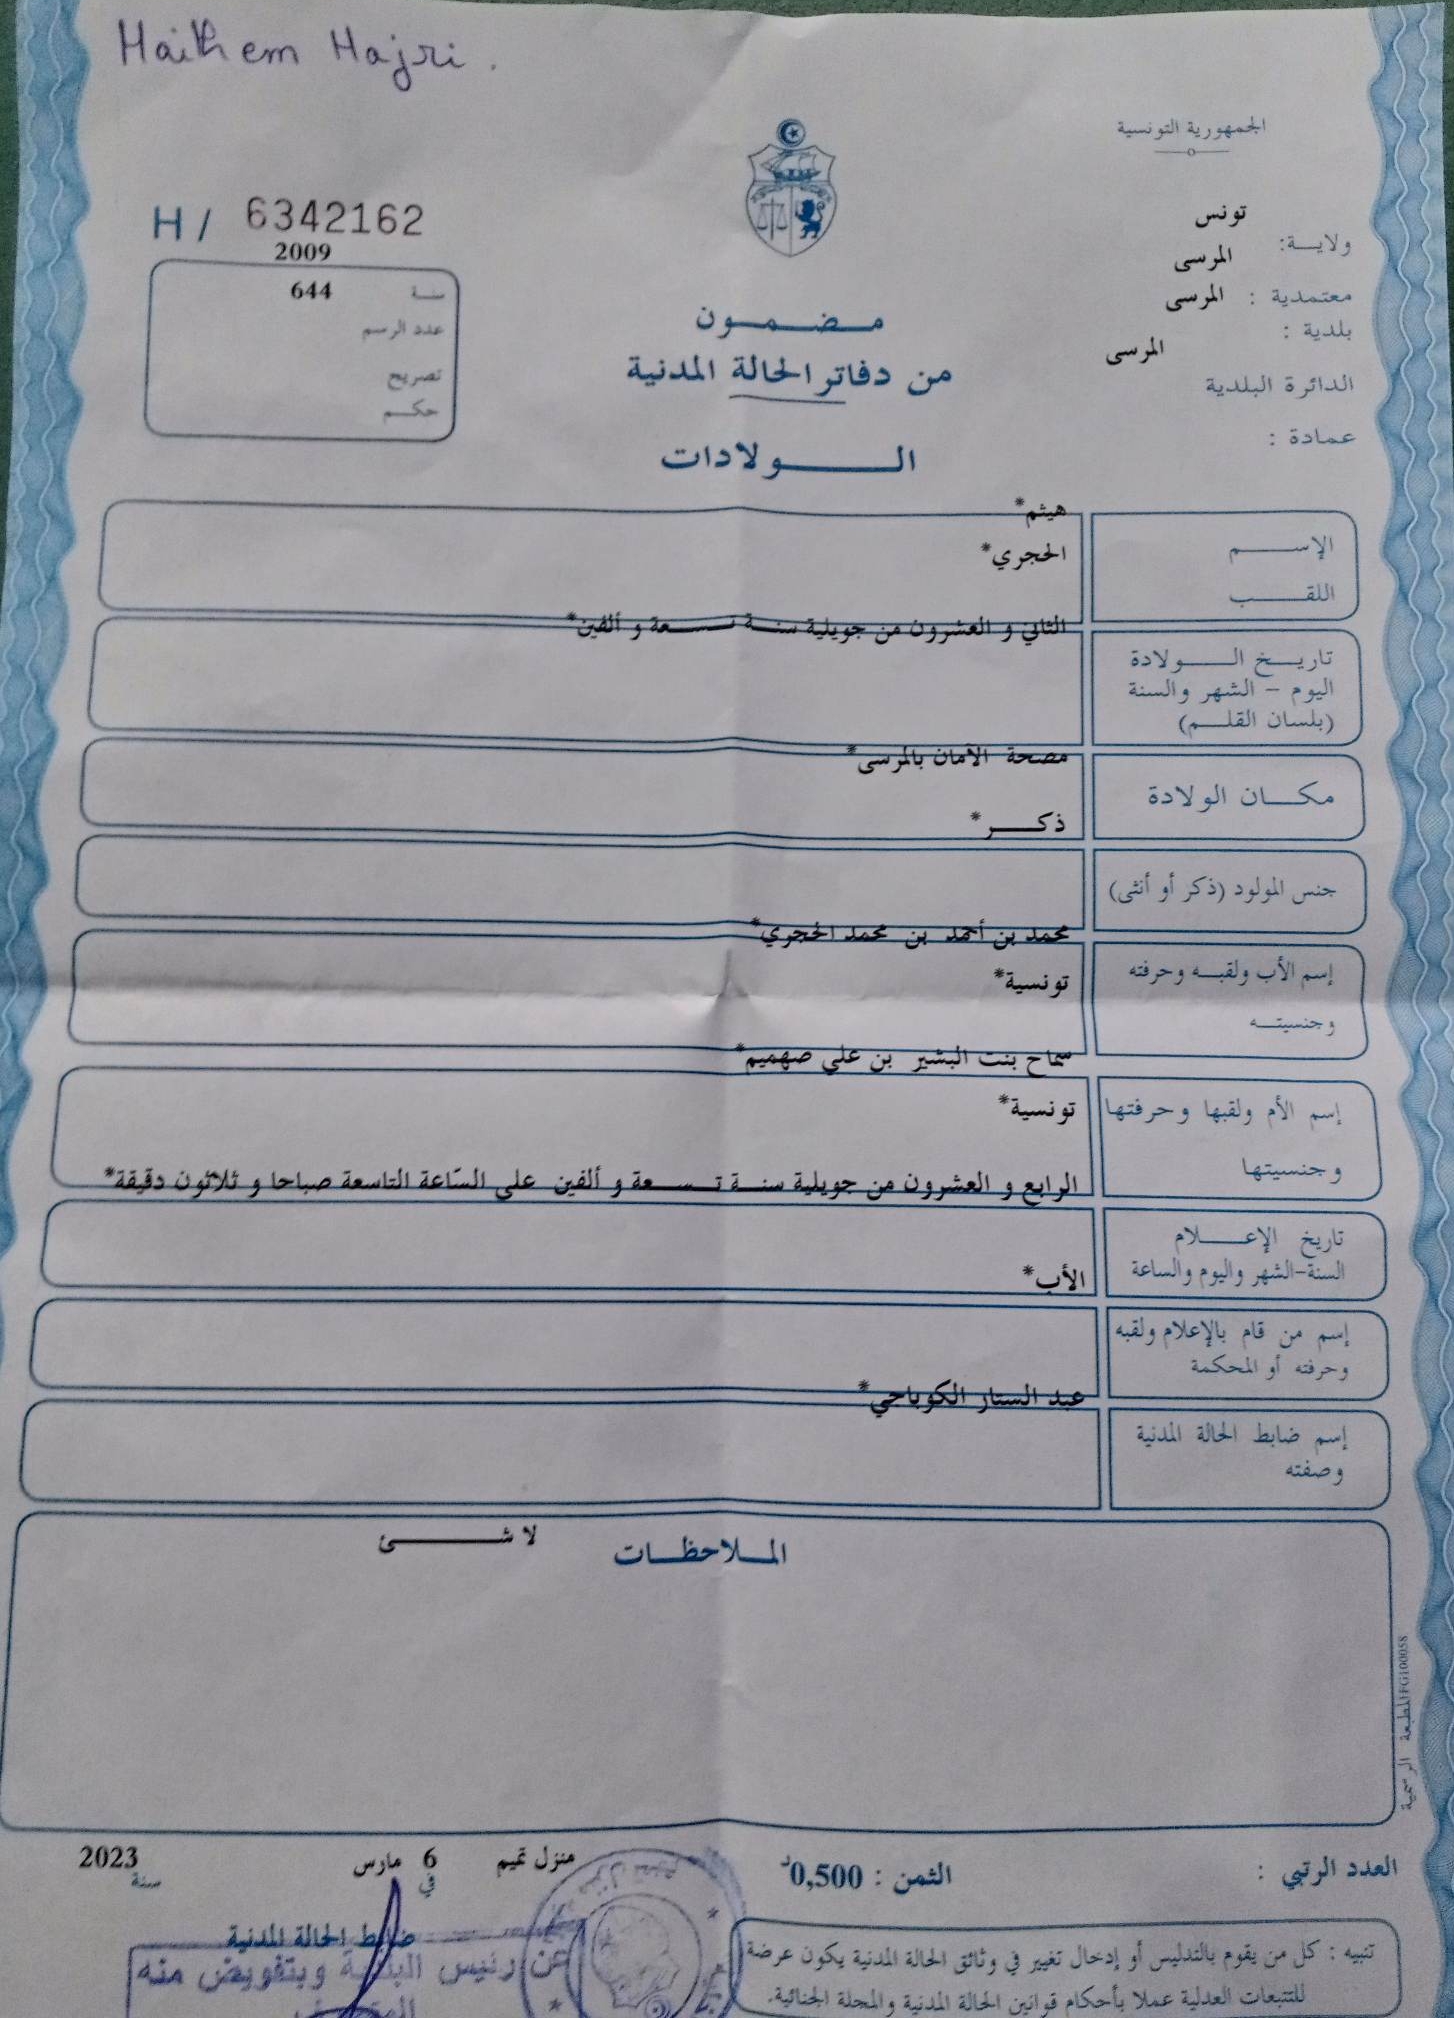 Haithem Hajri.
الجمهورية التونسية
تونس
ولايـــة:
المرسى
معتمدية : المرسى
بلدية :
المرسى
الدائرة البلدية
عمادة :
H / 6342162
2009
سنة 644
عدد الرسم
تصريح
حكم
مضمون
من دفاتر الحالة المدنية
الولادات
هيثم*
الإسم
الحجري*
اللقب
الثاني و العشرون من جويلية سنة تسعة و ألفين*
تاريخ الولادة
اليوم – الشهر والسنة
(بلسان القلم)
مصحة الآمان بالمرسى*
مكان الولادة
ذكر*
جنس المولود (ذكر أو أنثى)
محمد بن أحمد بن محمد الحجري*
إسم الأب ولقبه وحرفته
تونسية*
وجنسيته
سماح بنت البشير بن علي صهميم*
إسم الأم ولقبها وحرفتها
تونسية*
وجنسيتها
الرابع و العشرون من جويلية سنة تسعة و ألفين على السّاعة التاسعة صباحا و ثلاثون دقيقة*
تاريخ الإعلام
السنة-الشهر واليوم والساعة
الأب*
إسم من قام بالإعلام ولقبه
وحرفته أو المحكمة
عبد الستار الكوباجي*
إسم ضابط الحالة المدنية
وصفته
الملاحظات
لا شئ
المطبعة الرسمية IFG100058
العدد الرتبي :
الثمن : 0,500د
منزل تميم
في 6 مارس
سنة 2023
ضابط الحالة المدنية
عن رئيس البلدية وبتفويض منه
تنبيه : كل من يقوم بالتدليس أو إدخال تغيير في وثائق الحالة المدنية يكون عرضة
للتتبعات العدلية عملا بأحكام قوانين الحالة المدنية والمجلة الجنائية.